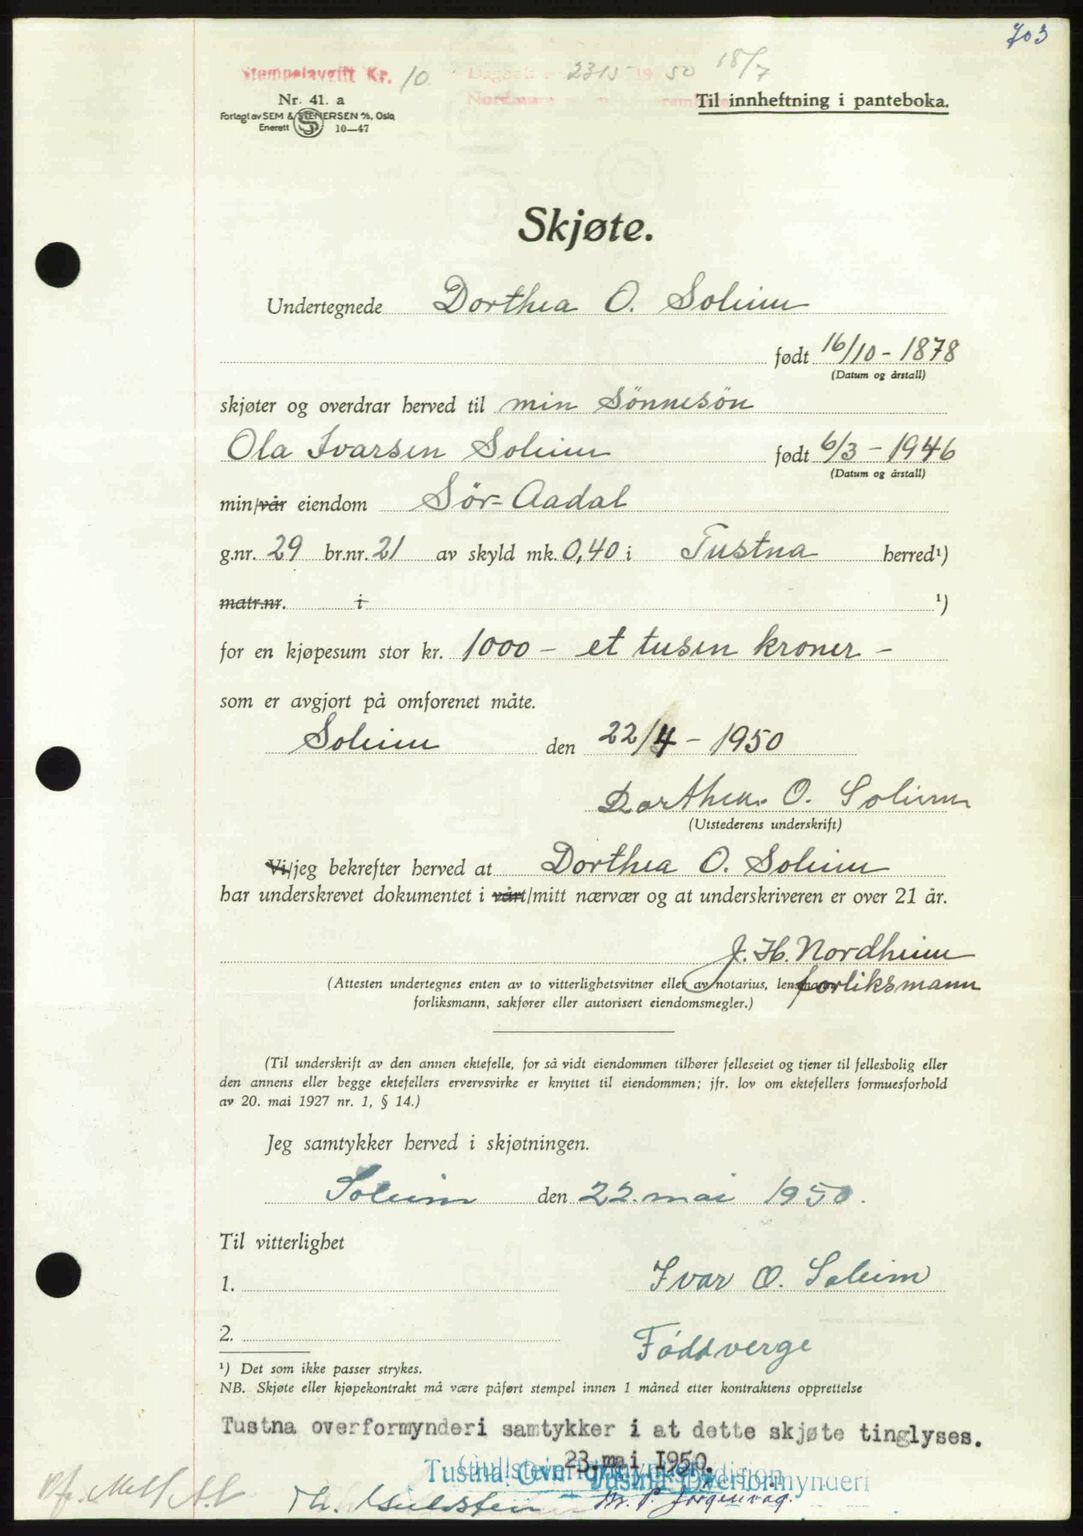 703
Stempelavgift Kr. 10.
Dagbok 2315 1950 18/7
Nordmøre
Nr. 41. a
Forlagt av SEM & STENERSEN A/S, Oslo
Enerett 10—47
Til innheftning i panteboka.
Skjøte.
Undertegnede Dorthea O. Soleim
født 16/10 - 1878
(Datum og årstall)
skjøter og overdrar herved til min Sönnesön
Ola Ivarsen Soleim født 6/3 - 1946
(Datum og årstall)
min/vår eiendom Sör-Aadal
g.nr. 29 br.nr. 21 av skyld mk. 0,40 i Tustna herred¹)
matr.nr. i ¹)
for en kjøpesum stor kr. 1000 - et tusen kroner -
som er avgjort på omforenet måte.
Soleim den 22/4 - 1950
Dorthea O. Soleim
(Utstederens underskrift)
Vi/jeg bekrefter herved at Dorthea O. Soleim
har underskrevet dokumentet i vårt/mitt nærvær og at underskriveren er over 21 år.
J. H. Nordheim
forliksmann
(Attesten undertegnes enten av to vitterlighetsvitner eller av notarius, lensmann,
forliksmann, sakfører eller autorisert eiendomsmegler.)
(Til underskrift av den annen ektefelle, for så vidt eiendommen tilhører felleseiet og tjener til fellesbolig eller
den annens eller begge ektefellers ervervsvirke er knyttet til eiendommen; jfr. lov om ektefellers formuesforhold
av 20. mai 1927 nr. 1, § 14.)
Jeg samtykker herved i skjøtningen.
Soleim den 22. mai 1950.
Til vitterlighet
1. Ivar O. Soleim
2. Föddverge
¹) Det som ikke passer strykes.
NB. Skjøte eller kjøpekontrakt må være påført stempel innen 1 måned etter kontraktens opprettelse
Tustna overformynderi samtykker i at dette skjøte tinglyses.
23. mai 1950.
Tustna Overformynderi